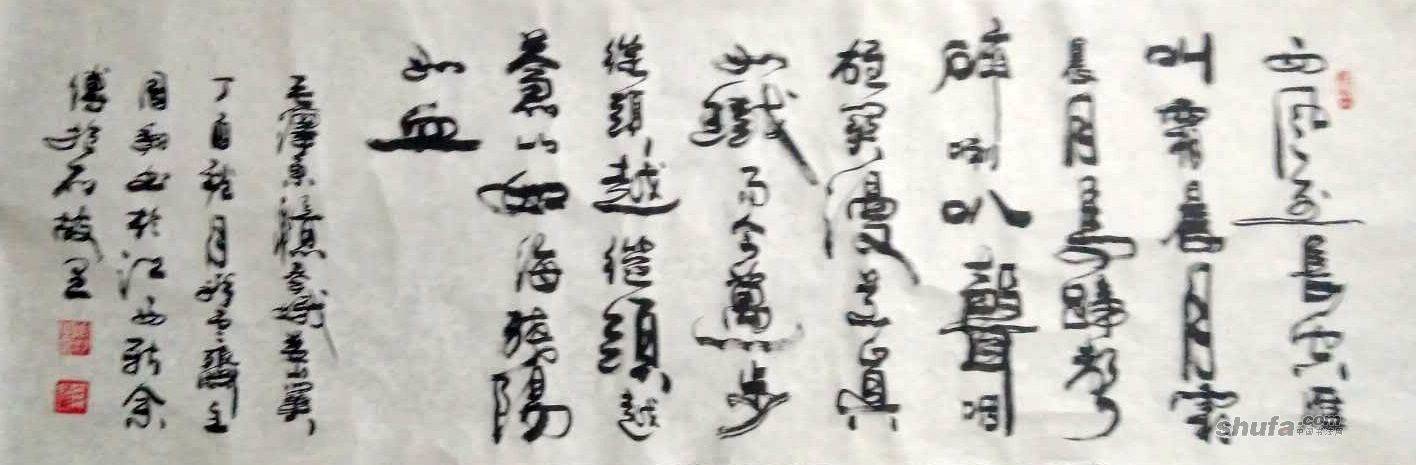 西風烈長空雁
叫霜晨月霜
晨月馬蹄聲
碎喇叭聲咽
雄關漫道真
如鐵而今邁步
從頭越從頭越
蒼山如海殘陽
如血
毛澤東憶秦娥婁山關
丁酉月齋主
國翔書於江西新余
傅抱石故里
shufa.com